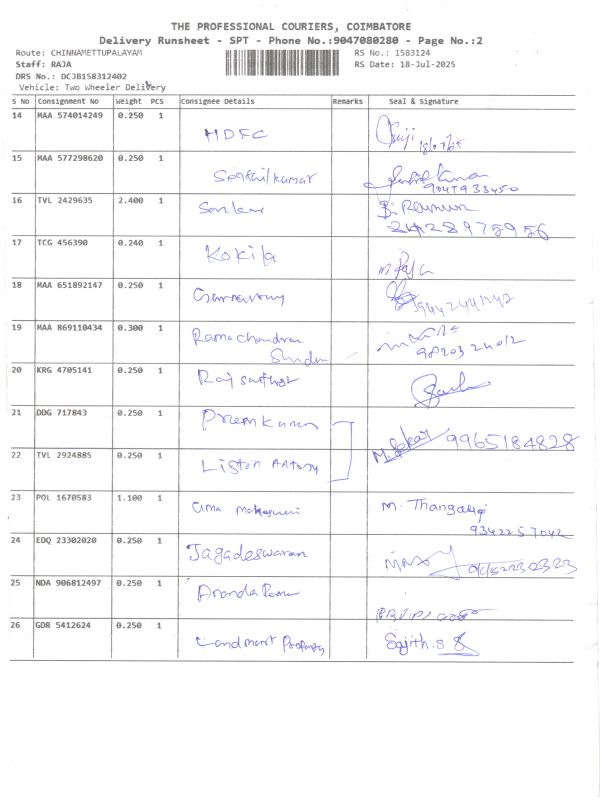 THE PROFESSIONAL COURIERS, COIMBATORE
Delivery Runsheet - SPT - Phone No.:9047080280 - Page No.:2
Route: CHINNAMETTUPALAYAM RS No.: 1583124
Staff: RAJA RS Date: 18-Jul-2025
DRS No.: DCJB158312402
Vehicle: Two Wheeler Delivery
S No Consignment No Weight PCS Consignee Details Remarks Seal & Signature
14 MAA 574014249 0.250 1 HDFC 18/07/25
15 MAA 577298620 0.250 1 Senthilkumar
9047933450
16 TVL 2429635 2.400 1 Sankar
17 TCG 456390 0.240 1 Kokila M. Raja
18 MAA 651892147 0.250 1
19 MAA 869110434 0.300 1 Ramachandran
20 KRG 4705141 0.250 1
21 DDG 717843 0.250 1 Prem Kumar
M. Sekar 9965184828
22 TVL 2924885 0.250 1 Liston Antony
23 POL 1670583 1.100 1 Uma M. Thangaraj
9342257042
24 EDQ 23302020 0.250 1 Jagadeswaran
25 NDA 906812497 0.250 1
26 GDR 5412624 0.250 1 Landmark Property Sajith.S